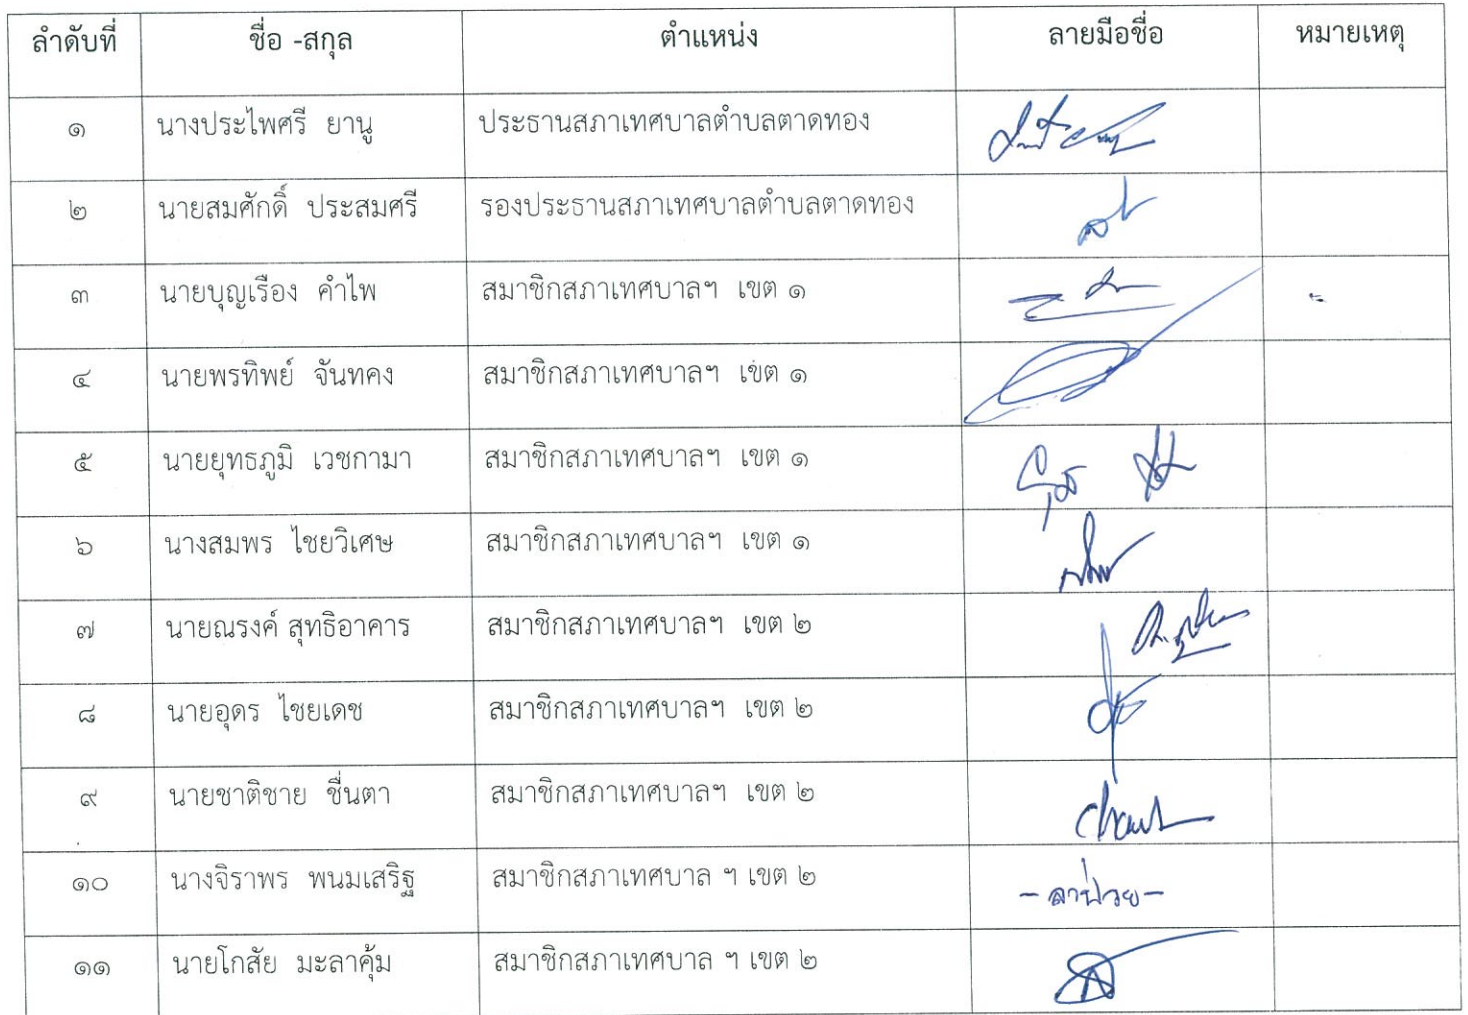 ลำดับที่ ชื่อ -สกุล ตำแหน่ง ลายมือชื่อ หมายเหตุ
๑ นางประไพศรี ยานู ประธานสภาเทศบาลตำบลตาดทอง
๒ นายสมศักดิ์ ประสมศรี รองประธานสภาเทศบาลตำบลตาดทอง
๓ นายบุญเรือง คำไพ สมาชิกสภาเทศบาลฯ เขต ๑
๔ นายพรทิพย์ จันทคง สมาชิกสภาเทศบาลฯ เขต ๑
๕ นายยุทธภูมิ เวชกามา สมาชิกสภาเทศบาลฯ เขต ๑
๖ นางสมพร ไชยวิเศษ สมาชิกสภาเทศบาลฯ เขต ๑
๗ นายณรงค์ สุทธิอาคาร สมาชิกสภาเทศบาลฯ เขต ๒
๘ นายอุดร ไชยเดช สมาชิกสภาเทศบาลฯ เขต ๒
๙ นายชาติชาย ชื่นตา สมาชิกสภาเทศบาลฯ เขต ๒
๑๐ นางจิราพร พนมเสริฐ สมาชิกสภาเทศบาล ฯ เขต ๒ -ลาป่วย-
๑๑ นายโกสัย มะลาคุ้ม สมาชิกสภาเทศบาล ฯ เขต ๒